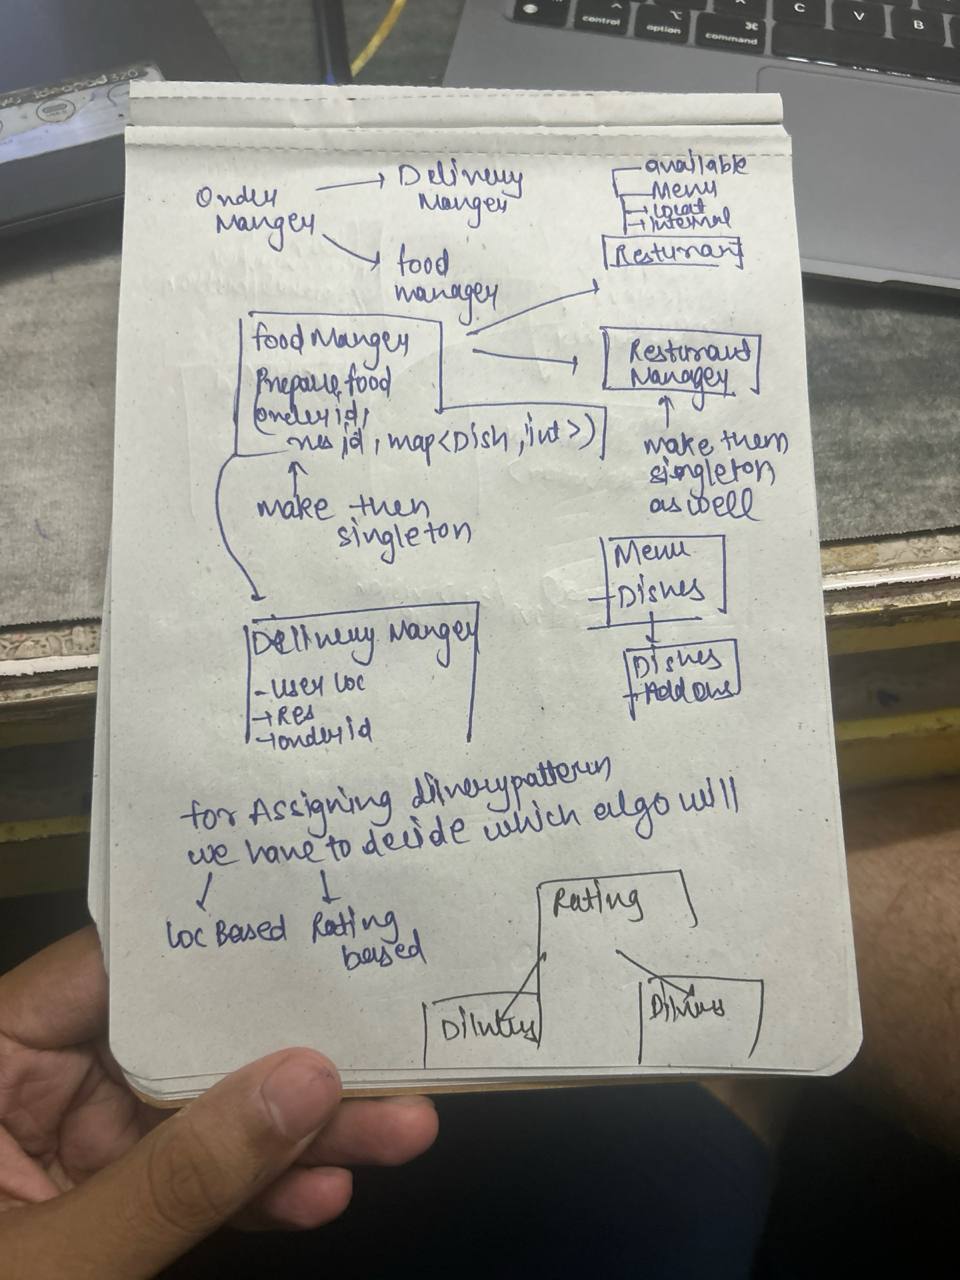 control
option
command
C
V
B
ideapad 320
Order
Manger
Delivery
Manger
food
manager
available
Menu
Locat
internal
Resturant
food Manger
Prepare food
(orderid,
res id, map<Dish, int>)
make then
singleton
Resturant
Manager
make them
singleton
as well
Menu
Dishes
Dishes
Add ons
Delivery Manger
- User Loc
→ Res
→ orderid
for Assigning
we have to decide which algo will
Loc Based
Rating
based
Rating